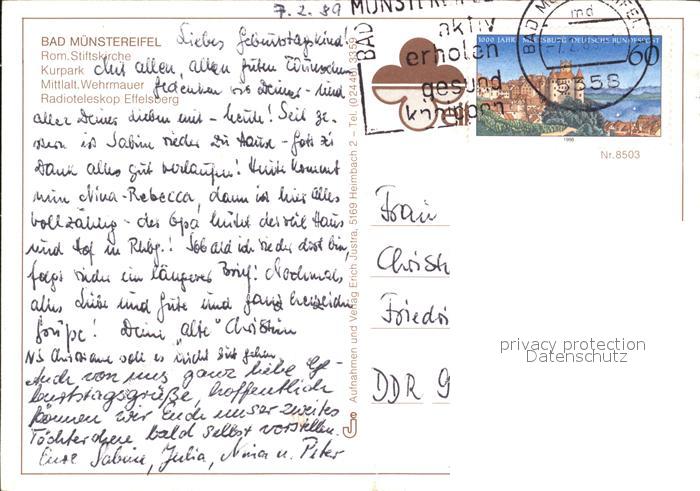 7.2.89
BAD MÜNSTEREIFEL
Rom.Stiftskirche
Kurpark
Mittlalt.Wehrmauer
Radioteleskop Effelsberg
Liebes Geburtstagskind!
Mit allen, allen guten Wünschen
gedenken wir Deiner - und
aller Deiner Lieben mit - heute! Seit ge-
stern ist Sabine wieder zu Haus - Gott sei
Dank alles gut verlaufen! Heute kommt
nun Nina-Rebecca, dann ist hier alles
vollzählig - der Opa hütet derweil Haus
und Hof in Rhög.! Sobald ich wieder dort bin,
folgt wieder ein längerer Brief! Nochmals
alles Liebe und Gute und ganz herzliche
Grüße! Deine "alte" Christin
NS Christiane soll es nicht gut gehen,
Auch von uns ganz liebe Ge-
burtstagsgrüße, hoffentlich
können wir Euch unser zweites
Töchterchen bald selbst vorstellen.
Eure Sabine, Julia, Nina u. Peter
Aufnahmen und Verlag Erich Justra, 5169 Heimbach 2 - Tel. (02446) 3359
MÜNSTEREIFEL
BAD
aktiv
erholen
gesund
kneippen
BAD MÜNSTEREIFEL
md
5358
1000 JAHRE MEERSBURG DEUTSCHE BUNDESPOST
60
1988
Nr.8503
Frau
Christi
Friedri
DDR 9
privacy protection
Datenschutz